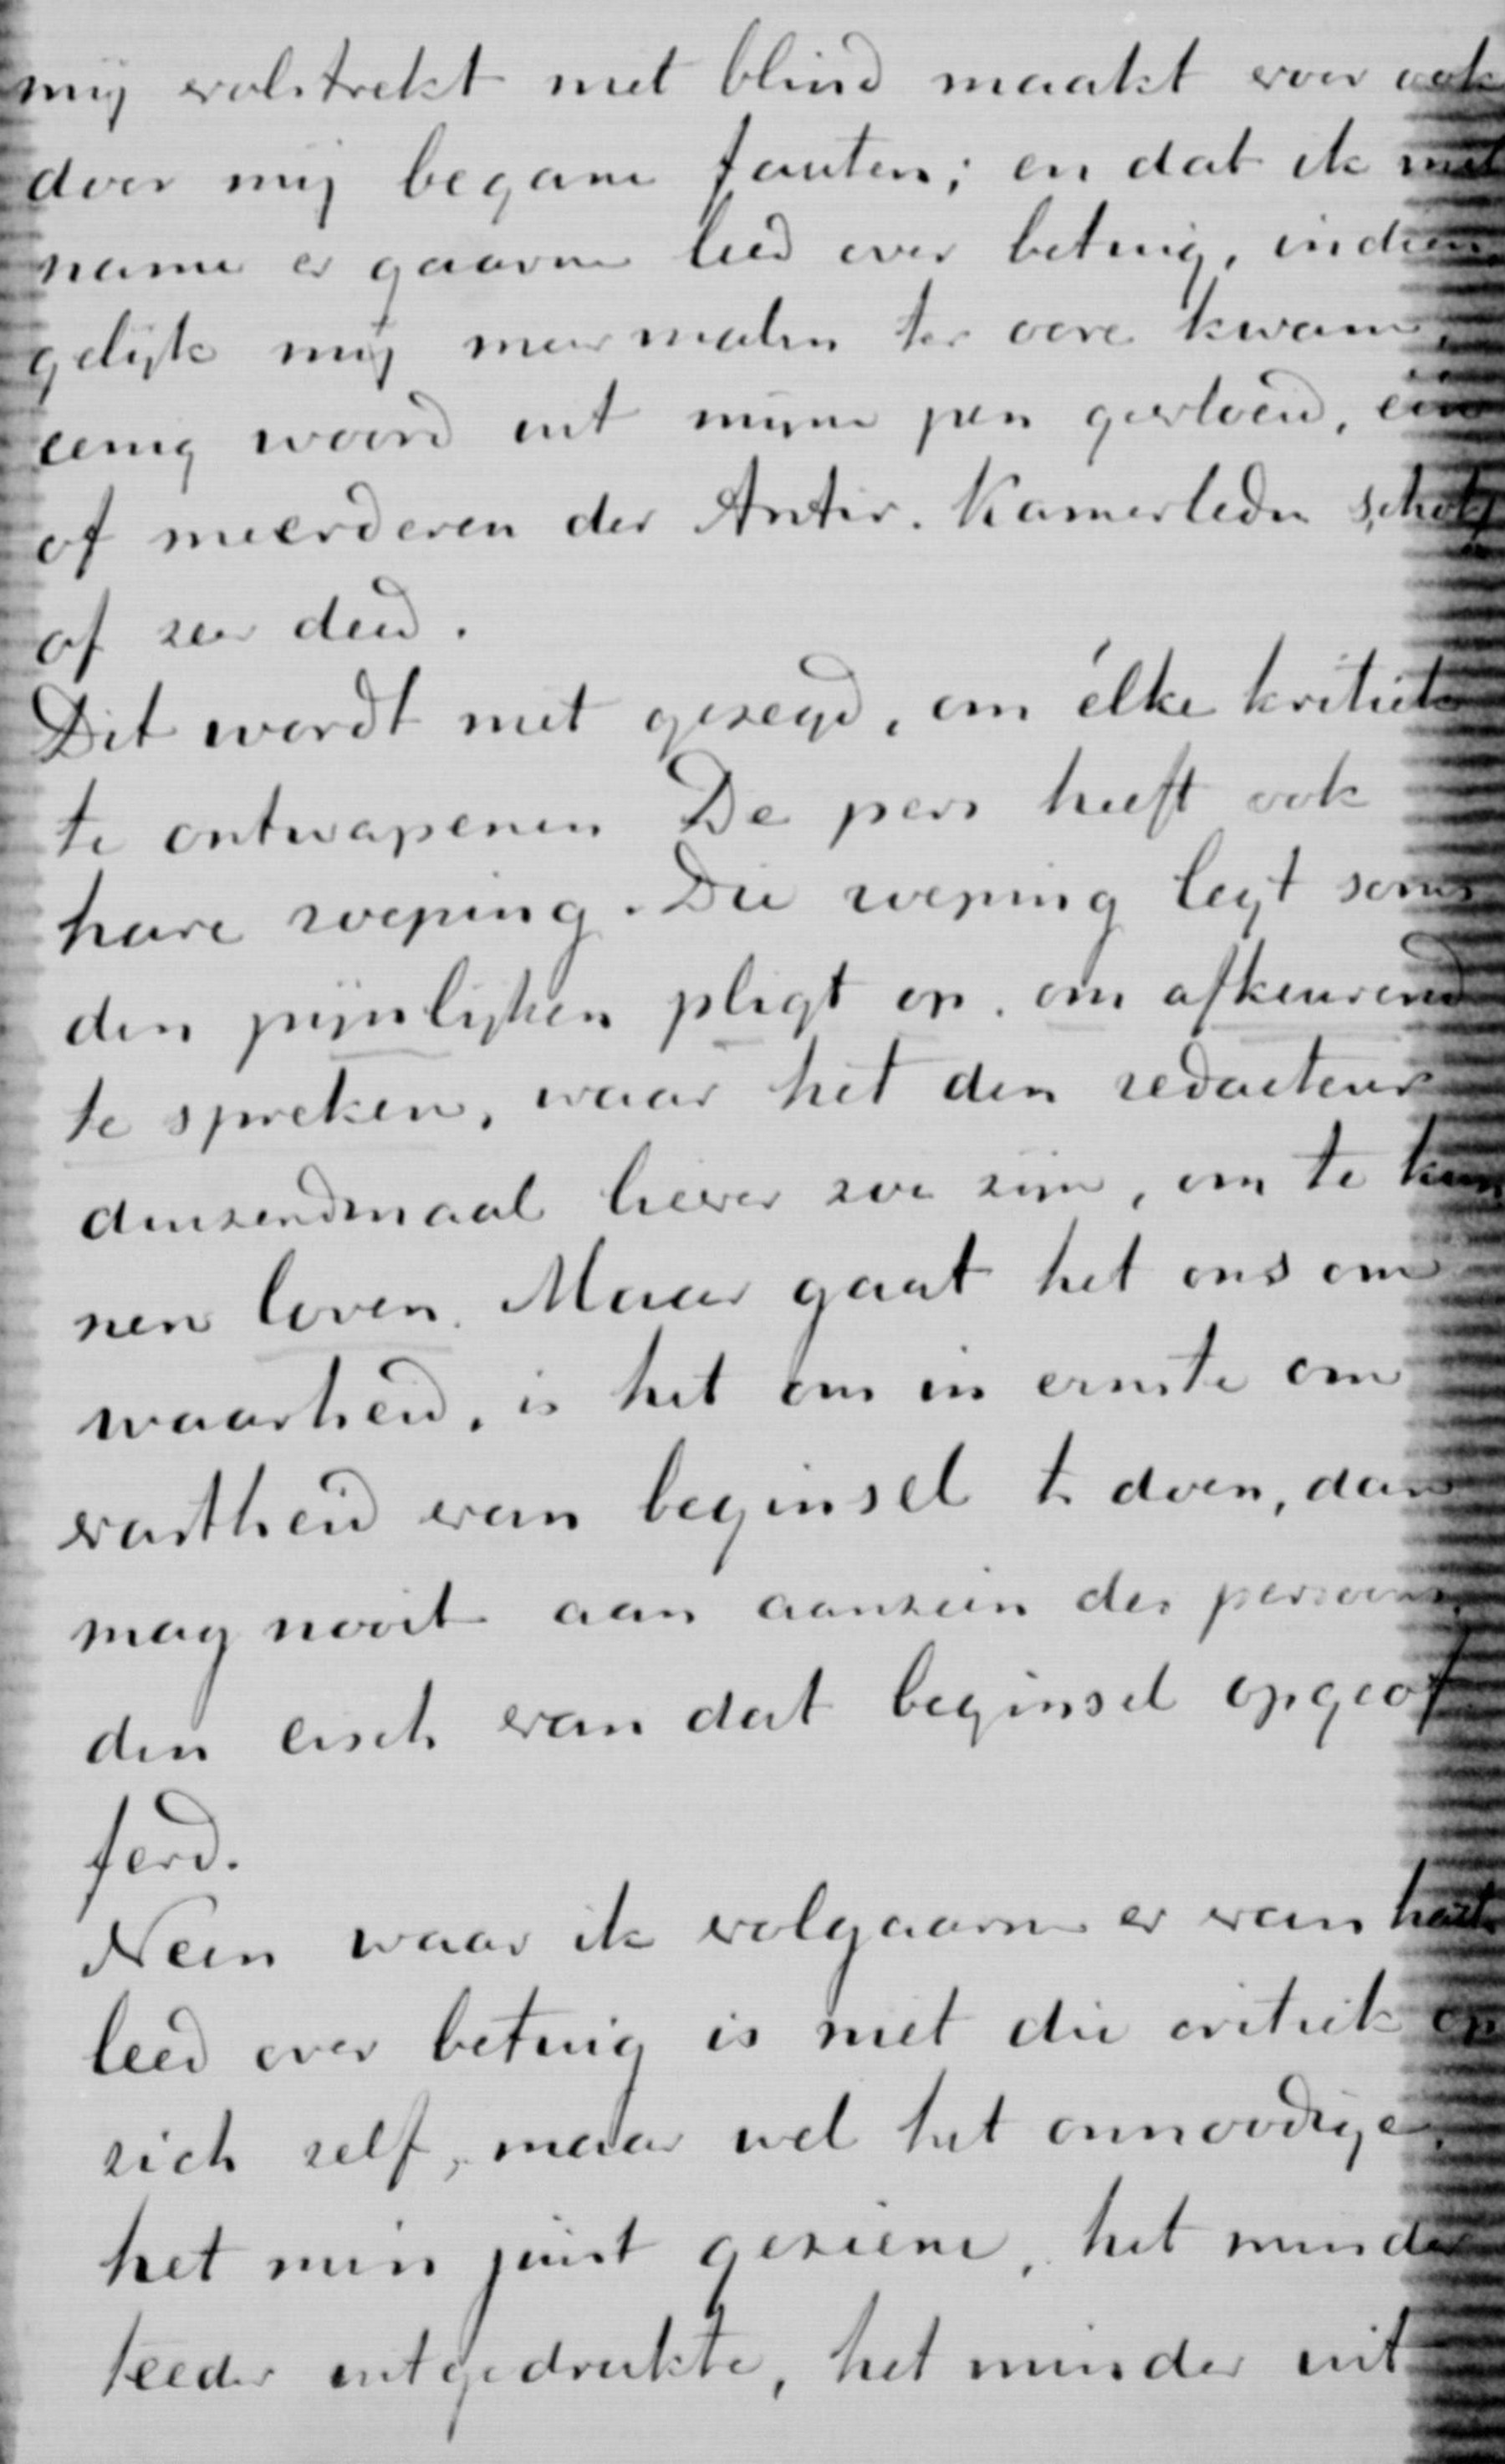 mij volstrekt niet blind maakt voor ook
door mij begane fauten; en dat ik met
name er gaarne leed over betuig, indien,
gelijk mij meermalen ter oore kwam,
eenig woord uit mijne pen gevloeid, één
of meerderen der Antir. Kamerleden schok
of zeer deed.
Dit wordt niet gezegd, om élke kritiek
te ontwapenen De pers heeft ook
hare roeping. Die roeping legt soms
den pijnlijken pligt op, om afkeurend
te spreken, waar het den redacteur
duizendmaal liever zou zijn, om te kun
nen loven. Maar gaat het ons om
waarheid, is het om in ernste om
vastheid van beginsel te doen, dan
mag nooit aan aanzien des persoons
den eisch van dat beginsel opgeof
ferd.
Neen waar ik volgaarne er van harte
leed over betuig is niet die critiek op
zich zelf, maar wel het onnoodige,
het min juist geziene, het minder
teeder uitgedrukte, het minder uit